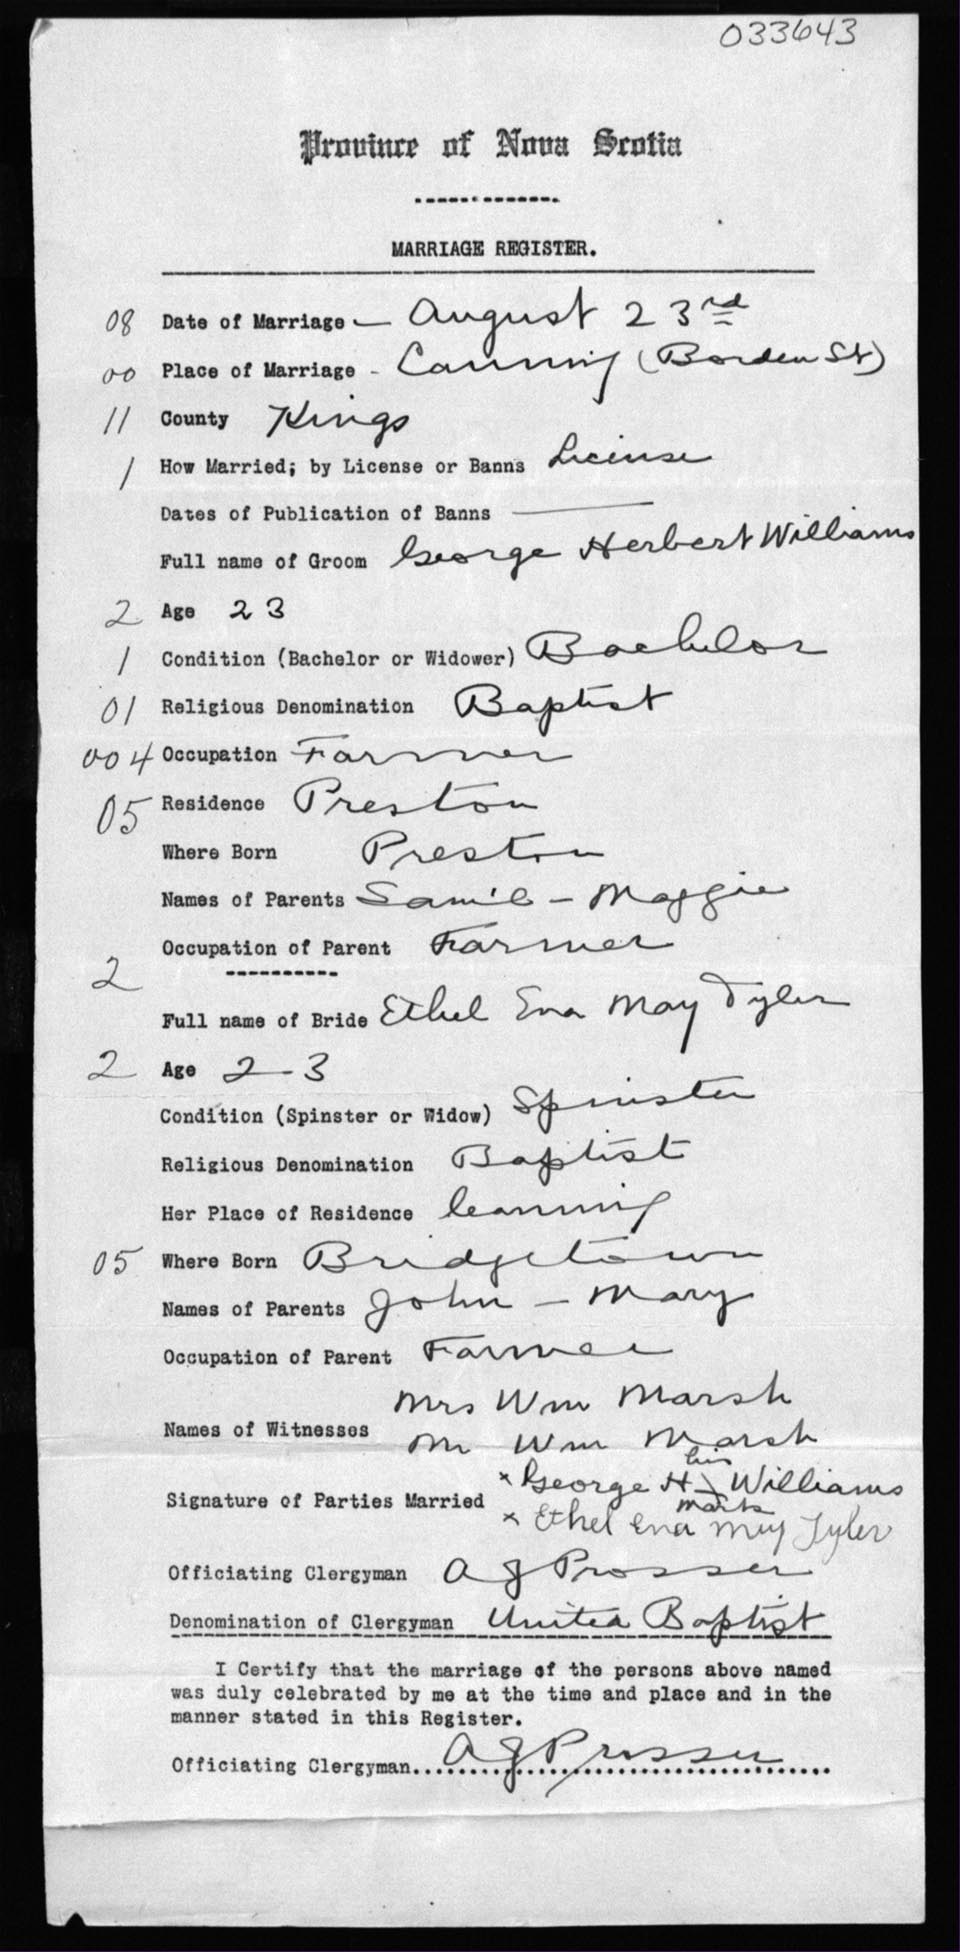 033643
Province of Nova Scotia
MARRIAGE REGISTER.
08 Date of Marriage — August 23rd
00 Place of Marriage - Canning (Borden St)
11 County Kings
1 How Married; by License or Banns License
Dates of Publication of Banns —
Full name of Groom George Herbert Williams
2 Age 23
1 Condition (Bachelor or Widower) Bachelor
01 Religious Denomination Baptist
004 Occupation Farmer
05 Residence Preston
Where Born Preston
Names of Parents Sam'l - Maggie
Occupation of Parent Farmer
2
Full name of Bride Ethel Ena May Tyler
2 Age 23
Condition (Spinster or Widow) Spinster
Religious Denomination Baptist
Her Place of Residence Canning
05 Where Born Bridgetown
Names of Parents John - Mary
Occupation of Parent Farmer
Mrs Wm Marsh
Names of Witnesses Mr Wm Marsh
his
Signature of Parties Married x George H x Williams
mark
x Ethel Ena May Tyler
Officiating Clergyman A J Prosser
Denomination of Clergyman United Baptist
I Certify that the marriage of the persons above named
was duly celebrated by me at the time and place and in the
manner stated in this Register.
Officiating Clergyman..... A J Prosser